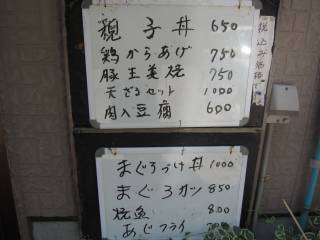 親子丼 650
鶏からあげ 750
豚生姜焼 750
天ざるセット 1000
肉入豆腐 600
税込み価格
まぐろづけ丼 1000
まぐろカツ 850
焼魚 800
あじフライ